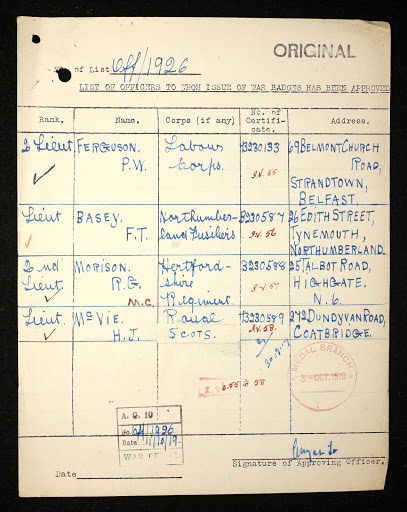 ORIGINAL
No. of List Off/1926
LIST OF OFFICERS TO WHOM ISSUE OF WAR BADGES HAS BEEN APPROVED
Rank. Name. Corps (if any) No. of Certifi-cate. Address.
2 Lieut FERGUSON. P.W. Labour Corps. 3230133 69 BELMONT CHURCH ROAD, STRANDTOWN, BELFAST.
Lieut BASEY. F.T. Northumber-land Fusiliers 3230587 26 EDITH STREET, TYNEMOUTH, NORTHUMBERLAND.
2nd Lieut. MORISON. R.G. M.C. Hertford-shire Regiment. 3230588 25 TALBOT ROAD, HIGHGATE, N.6.
Lieut. McVIE. H.J. Royal Scots. 3230589 272 DUNDYVAN ROAD, COATBRIDGE.
MEDAL BRANCH
A. G. 10
No. Off/1926
Date
Signature of Approving Officer.
Date